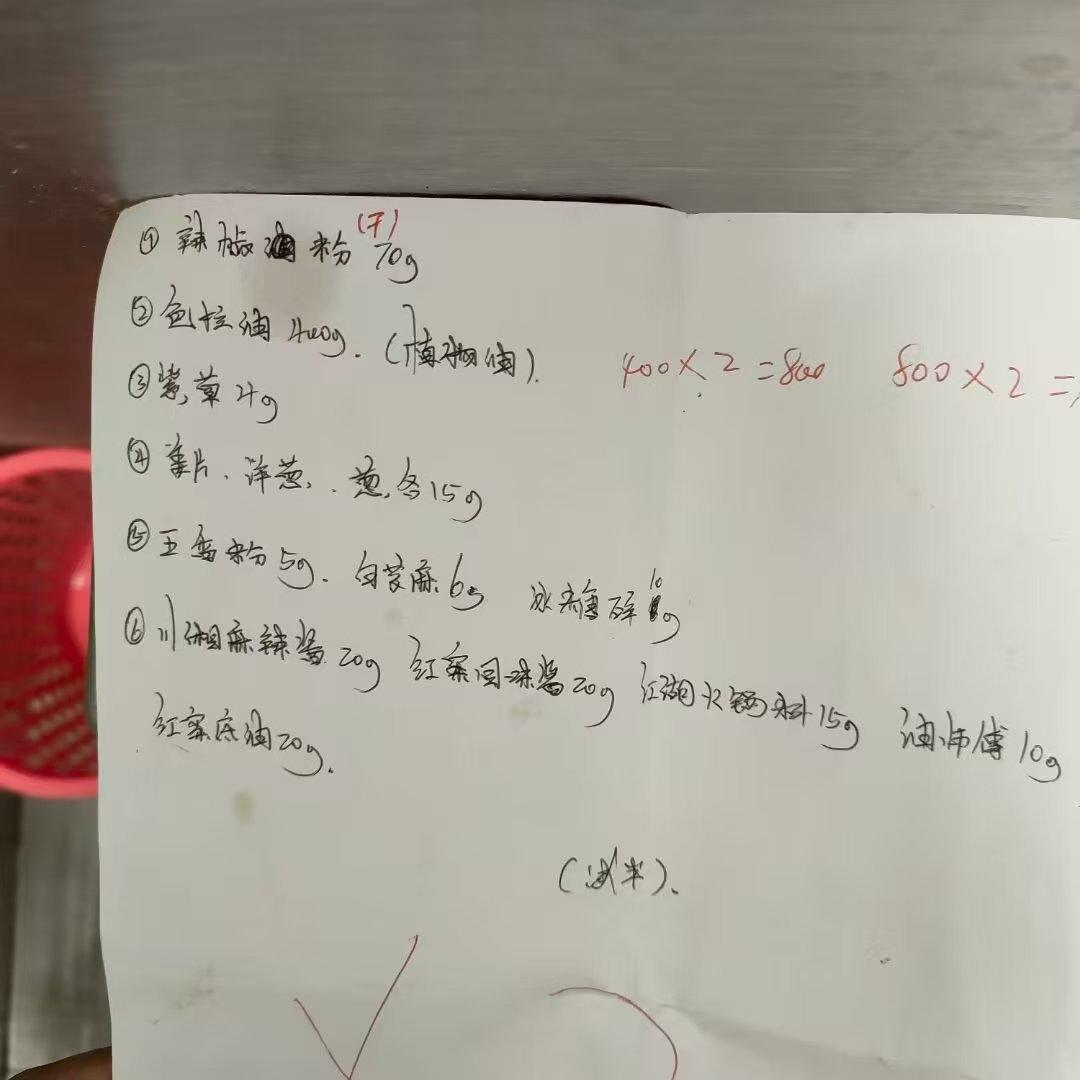 ① 辣椒粉 (干) 70g
② 色拉油 400g. (植物油).
400×2=800 800×2=
③ 紫草 4g
④ 姜片、洋葱、葱各15g
⑤ 五香粉 5g. 白芝麻 6g 冰糖碎 10g
⑥ 川湘麻辣酱 20g 红案回味酱 20g 江湖火锅料 15g 油师傅 10g
红案底油 20g.
(试半).